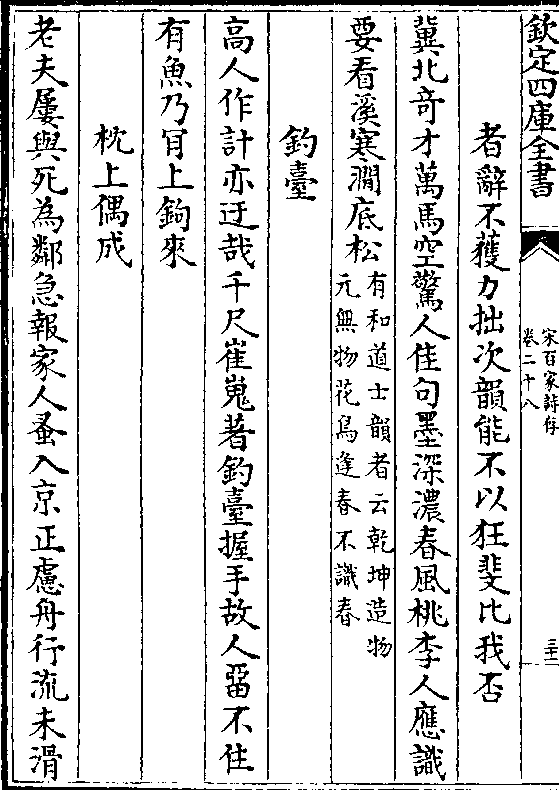 欽定四庫全書
宋百家詩存
卷二十八
三十二
者辭不獲力拙次韻能不以狂斐比我否
冀北奇才萬馬空驚人佳句墨深濃春風桃李人應識
要看溪寒澗底松
有和道士韻者云乾坤造物
元無物花鳥逢春不識春
釣臺
高人作計亦迂哉千尺崔嵬著釣臺握手故人畱不住
有魚乃肎上鉤來
枕上偶成
老夫屢與死為鄰急報家人蚤入京正慮舟行流未滑